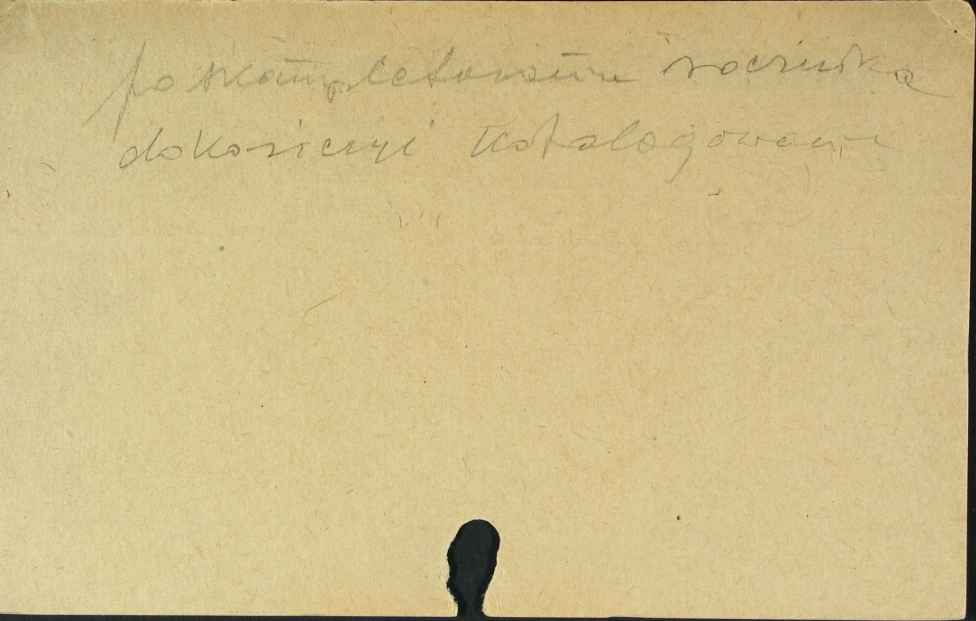 po skompletowaniu rocznika
dokończyć katalogowanie